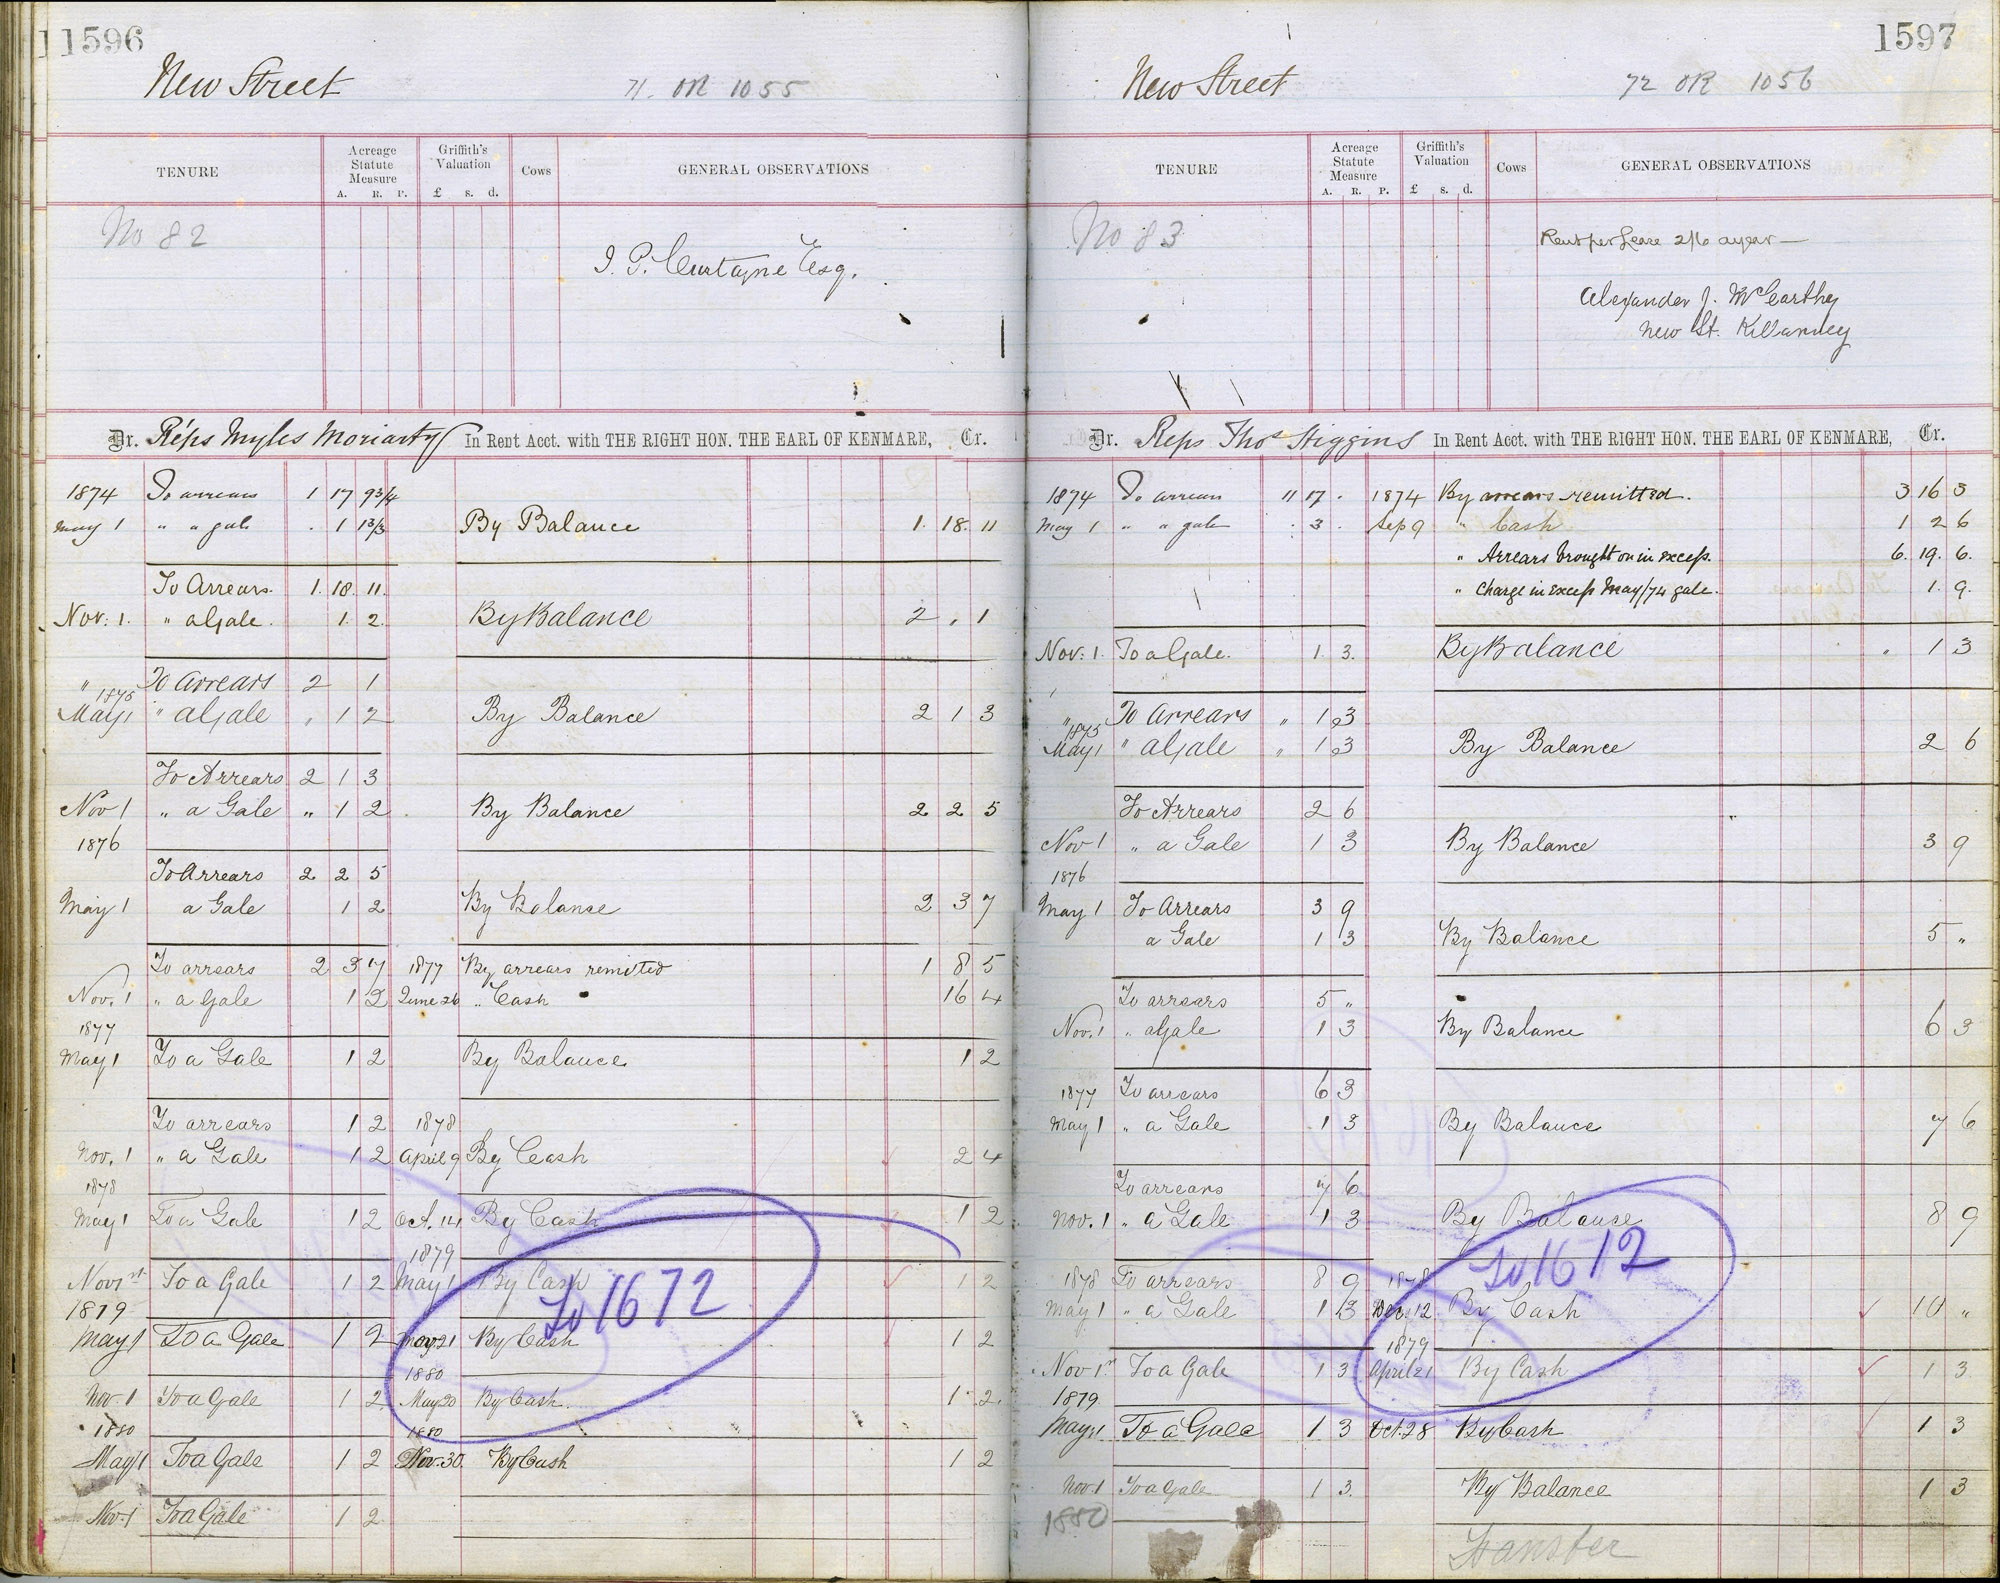 11596
New Street
71. OR 1055
TENURE
Acreage Statute Measure
A. R. P.
Griffith's Valuation
£ s. d.
Cows
GENERAL OBSERVATIONS
No 82
J. P. Curtayne Esq.
Dr. Reps Myles Moriarty In Rent Acct. with THE RIGHT HON. THE EARL OF KENMARE, Cr.
1874 To arrears 1 17 9 3/4
May 1 " a gale . 1 By Balance 1. 18. 11
To Arrears. 1. 18. 11.
Nov. 1. " a Gale. 1. 2. By Balance 2 , 1
" To Arrears 2 1
1875
May 1 " a Gale , 1 2 By Balance 2 1 3
To Arrears 2 1 3
Nov 1 " a Gale " 1 2 By Balance 2 2 5
1876
To Arrears 2 2 5
May 1 a Gale 1 2 By Balance 2 3 7
To arrears 2 3 7 1877 By arrears remitted 1 8 5
Nov. 1 " a Gale 1 2 June 26 " Cash 16 4
1877
May 1 To a Gale 1 2 By Balance 1 2
To arrears 1 2 1878
Nov. 1 " a Gale 1 2 April 9 By Cash 2 4
1878
May 1 To a Gale 1 2 Oct. 14 By Cash 1 2
1879
Nov 1st To a Gale 1 2 May 1 By Cash 1 2
To 1672
1879
May 1 To a Gale 1 2 21 By Cash 1 2
1880
Nov. 1 To a Gale 1 2 May 20 By Cash. 1. 2.
1880 1880
May 1 To a Gale 1 2 Nov. 30. By Cash 1 2
Nov. 1 To a Gale 1 2
1597
New Street
72 OR 1056
TENURE
Acreage Statute Measure
A. R. P.
Griffith's Valuation
£ s. d.
Cows
GENERAL OBSERVATIONS
No 83
Rent per Lease 2/6 a year —
Alexander J. McCarthy
New St. Killarney
Dr. Reps Thos Higgins In Rent Acct. with THE RIGHT HON. THE EARL OF KENMARE, Cr.
1874 To arrears 11 17 . 1874 By arrears remitted. 3 16 3
May 1 " " gale . 3 . Sep 9 " Cash 1 2 6
" Arrears brought on in excess. 6. 19. 6.
" Charge in excess May/74 gale. 1. 9.
Nov. 1. To a Gale. 1. 3. By Balance " 1 3
" To Arrears " 1 3
1875
May 1 " a Gale " 1 3 By Balance 2 6
To Arrears 2 6
Nov 1 " a Gale 1 3 By Balance 3 9
1876
May 1 To Arrears 3 9
a Gale 1 3 By Balance 5 "
To arrears 5 "
Nov. 1 " a Gale 1 3 By Balance 6 3
1877 To arrears 6 3
May 1 " a Gale 1 3 By Balance 7 6
To arrears 7 6
Nov. 1 " a Gale 1 3 By Balance 8 9
To 1612
1878 To arrears 8 9 1878
May 1 " a Gale 1 3 Dec. 12 By Cash 10 "
1879
Nov 1st To a Gale 1 3 April 21 By Cash 1 3
1879
May 1 To a Gale 1 3 Oct. 28 By Cash 1 3
Nov. 1 To a Gale 1 3. By Balance 1 3
1880
Transfer